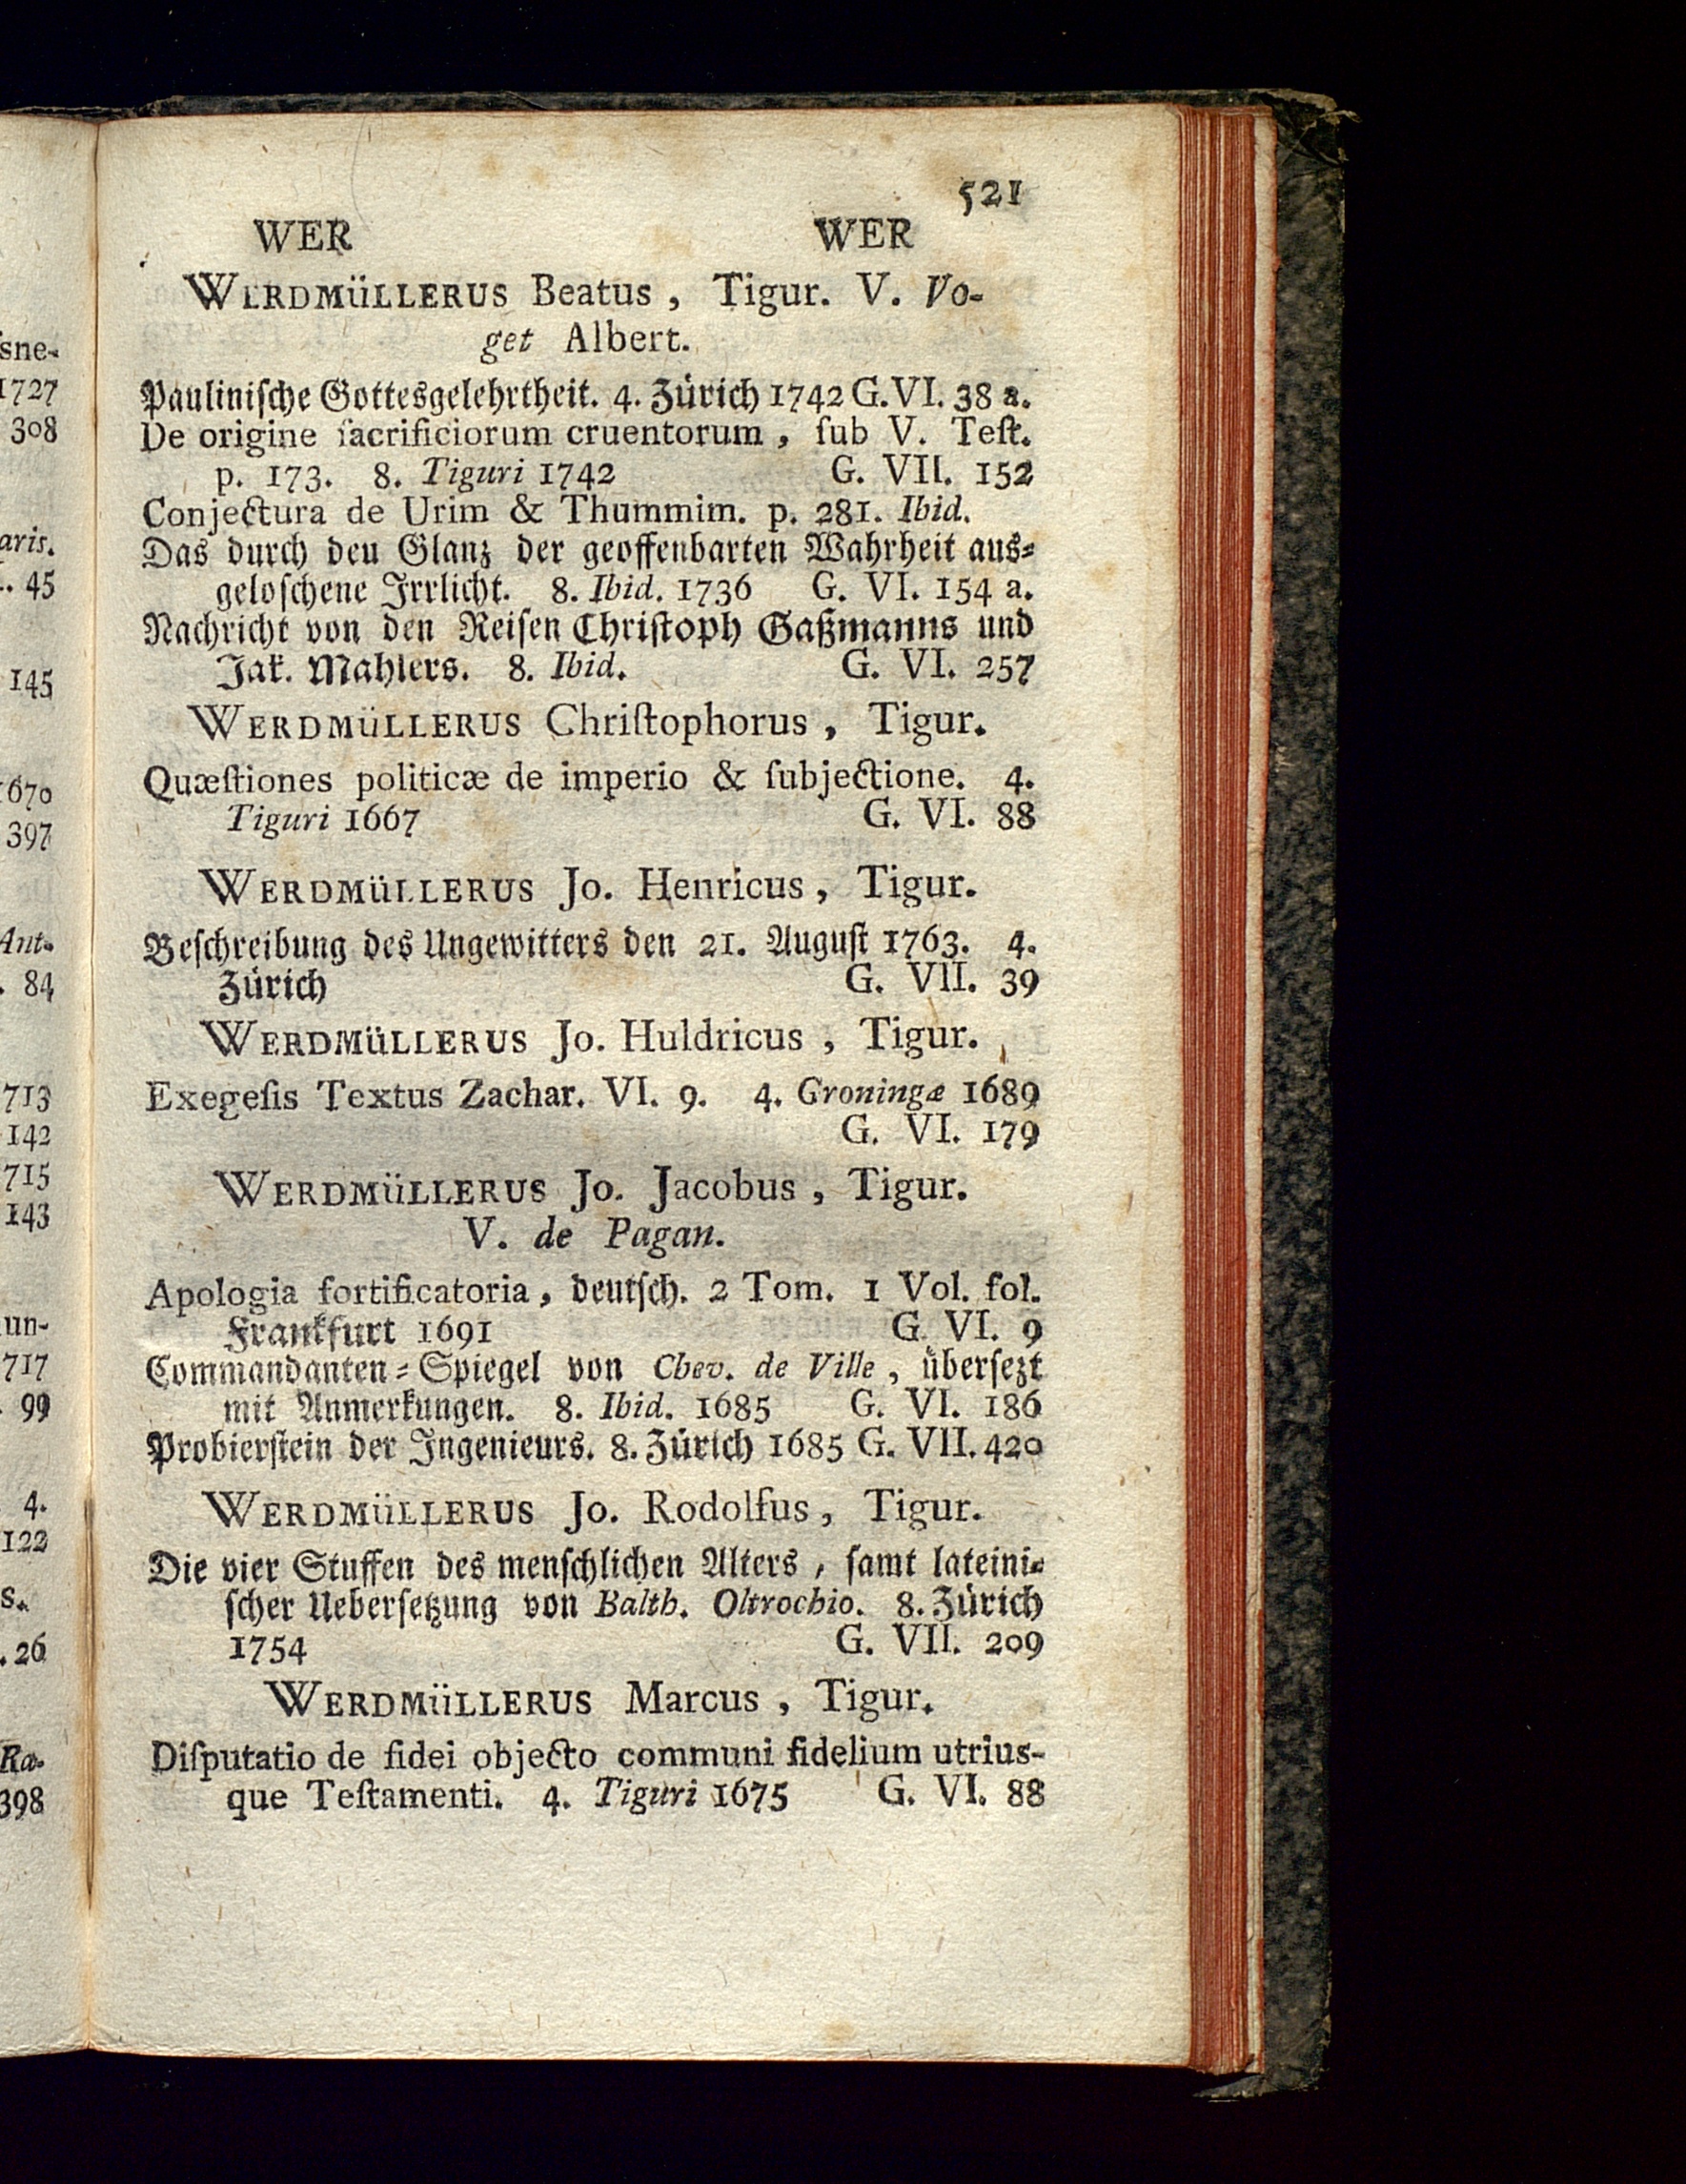 sne-
1727
308
aris.
.. 45
145
1670
397
Ant-
. 84
713
142
715
143
un-
717
. 99
4.
122
s.
. 26
Ra-
398
521
WER WER
WERDMÜLLERUS Beatus, Tigur. V. Vo-
get Albert.
Paulinische Gottesgelehrtheit. 4. Zürich 1742 G. VI. 38 a.
De origine ſacrificiorum cruentorum, ſub V. Teſt.
p. 173. 8. Tiguri 1742 G. VII. 152
Conjectura de Urim & Thummim. p. 281. Ibid.
Das durch den Glanz der geoffenbarten Wahrheit aus-
geloſchene Irrlicht. 8. Ibid. 1736 G. VI. 154 a.
Nachricht von den Reiſen Chriſtoph Gaßmanns und
Jak. Mahlers. 8. Ibid. G. VI. 257
WERDMÜLLERUS Chriſtophorus, Tigur.
Quæſtiones politicæ de imperio & ſubjectione. 4.
Tiguri 1667 G. VI. 88
WERDMÜLLERUS Jo. Henricus, Tigur.
Beſchreibung des Ungewitters den 21. Auguſt 1763. 4.
Zürich G. VII. 39
WERDMÜLLERUS Jo. Huldricus, Tigur.
Exegeſis Textus Zachar. VI. 9. 4. Groningæ 1689
G. VI. 179
WERDMÜLLERUS Jo. Jacobus, Tigur.
V. de Pagan.
Apologia fortificatoria, deutſch. 2 Tom. 1 Vol. fol.
Frankfurt 1691 G. VI. 9
Commandanten-Spiegel von Chev. de Ville, überſezt
mit Anmerkungen. 8. Ibid. 1685 G. VI. 186
Probierſtein der Ingenieurs. 8. Zürich 1685 G. VII. 420
WERDMÜLLERUS Jo. Rodolfus, Tigur.
Die vier Stuffen des menſchlichen Alters, ſamt lateini-
ſcher Ueberſetzung von Balth. Oltrochio. 8. Zürich
1754 G. VII. 209
WERDMÜLLERUS Marcus, Tigur.
Diſputatio de fidei objecto communi fidelium utrius-
que Teſtamenti. 4. Tiguri 1675 G. VI. 88